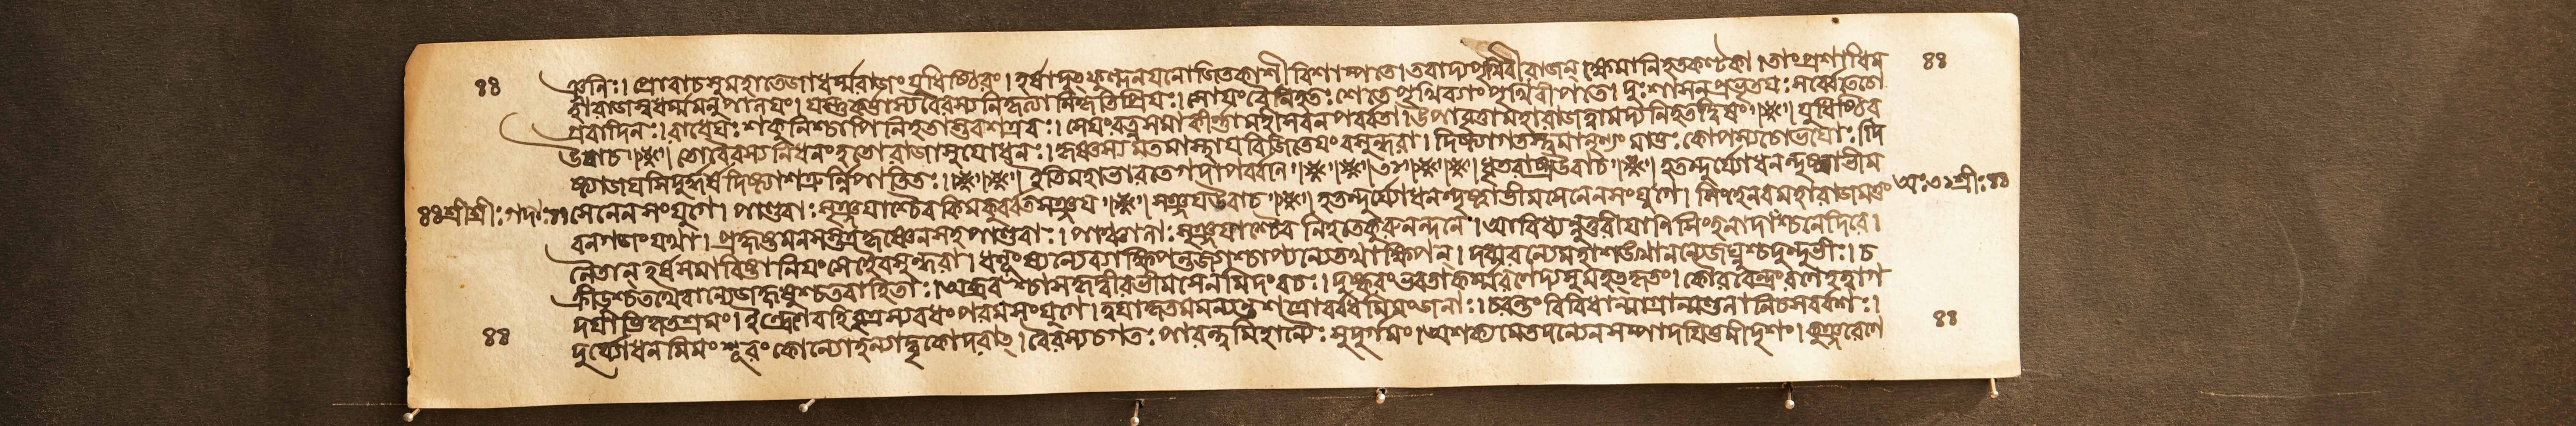 ৪৪ ঞ্জনিঃ। প্রোবাচসুমহাতেজাধর্ম্মরাজং যুধিষ্ঠিরং। হর্ষাদুৎফুল্লনয়নোজিতকাশীবিশাম্পতে। তবাদ্যপৃথিবীরাজন্ ক্ষেমানিহতকণ্টকা। তাংপ্রশাধিম ৪৪
হারাজস্বধর্ম্মমনুপালয়ং। যস্তুকর্ত্তাস্যবৈরস্যনিকৃত্যানিকৃতিপ্রিয়ঃ। সোয়ংবৈনিহতঃ শেতেপৃথিব্যাংপৃথিবীপতে। দুঃশাসনপ্রভৃতয়ঃ সর্ব্বেতেতো
গ্রবাদিনঃ। রাধেয়ঃ শকুনিশ্চাপিনিহতাস্তবশত্রবঃ। সেয়ংরত্নসমাকীর্ণামহীসবনপর্ব্বতা। উপাবৃত্তামহারাজত্বামদ্যনিহতদ্বিষং। যুধিষ্ঠির
উবাচ। গতোবৈরস্যনিধনংহতোরাজাসুযোধনঃ। কৃষ্ণস্যমতমাস্থায়বিজিতেয়ংবসুন্ধরা। দিষ্ট্যাগতস্ত্বমানৃণ্যং মাতুঃ কোপস্যচোভয়োঃ। দি
ষ্ট্যাজয়সিদুর্দ্ধর্ষদিষ্ট্যাশত্রুর্ন্নিপাতিতঃ। ইতিমহাভারতেগদাপর্ব্বনিঃ ধৃতরাষ্ট্রউবাচ। হতন্দুর্য্যোধনন্দৃষ্ট্বাভীম
৪৪শ্রীশ্রীঃ গদাঃ সেনেনসংযুগে। পাণ্ডবাঃ সৃঞ্জয়াশ্চৈব কিমকুর্ব্বতসঞ্জয়। সঞ্জয়উবাচ। হতন্দুর্য্যোধনন্দৃষ্ট্বাভীমসেনেনসংযুগে। সিংহেনেবমহারাজমত্তং অঃ শ্রীঃ ৪৪
বনগজংযথা। প্রহৃষ্টমনসস্তত্রকৃষ্ণেনসহপাণ্ডবাঃ। পাঞ্চালাঃ সৃঞ্জয়াশ্চৈব নিহতেকুরুনন্দনে। আবিধ্যন্নুত্তরীয়াণিসিংহনাদাংশ্চনেদিরে।
নৈতান্ হর্ষসমাবিষ্টানিয়ংসেহেবসুন্ধরা। ধনূংষ্যন্যেব্যাক্ষিপন্তজ্যাশ্চাপ্যন্যেতথাক্ষিপন্। দধ্মুরন্যেমহাশঙ্খানন্যেজঘ্নুশ্চদুন্দুভীঃ। চ
ক্রীডুশ্চতথৈবান্যেজহৃষুশ্চতবাহিতাঃ। অব্রুবংশ্চাসকৃদ্বীরাভীমসেনমিদংবচঃ। দুষ্করংভবতাকর্ম্মরণেদ্যসুমহৎকৃতং। কৌরবেন্দ্রংরণেহত্বাগ
দয়াতিকৃতশ্রমং। ইন্দ্রেণেবহিবৃত্রস্যবধংপরমসংযুগে। ত্বয়াকৃতমমন্যন্তশত্রোর্বধমিমংজনাঃ। চরন্তং বিবিধান্মার্গান্মণ্ডলানিচসর্ব্বশঃ।
৪৪ দুর্য্যোধনমিমং শূরং কোন্যোহন্যাদ্বৃকোদরাৎ। বৈরস্যচগতঃ পারন্ত্বমিহান্যৈঃ সুদুর্গমং। অশক্যমেতদন্যেনসম্পাদয়িতুমীদৃশং। কুঞ্জরেণে ৪৪